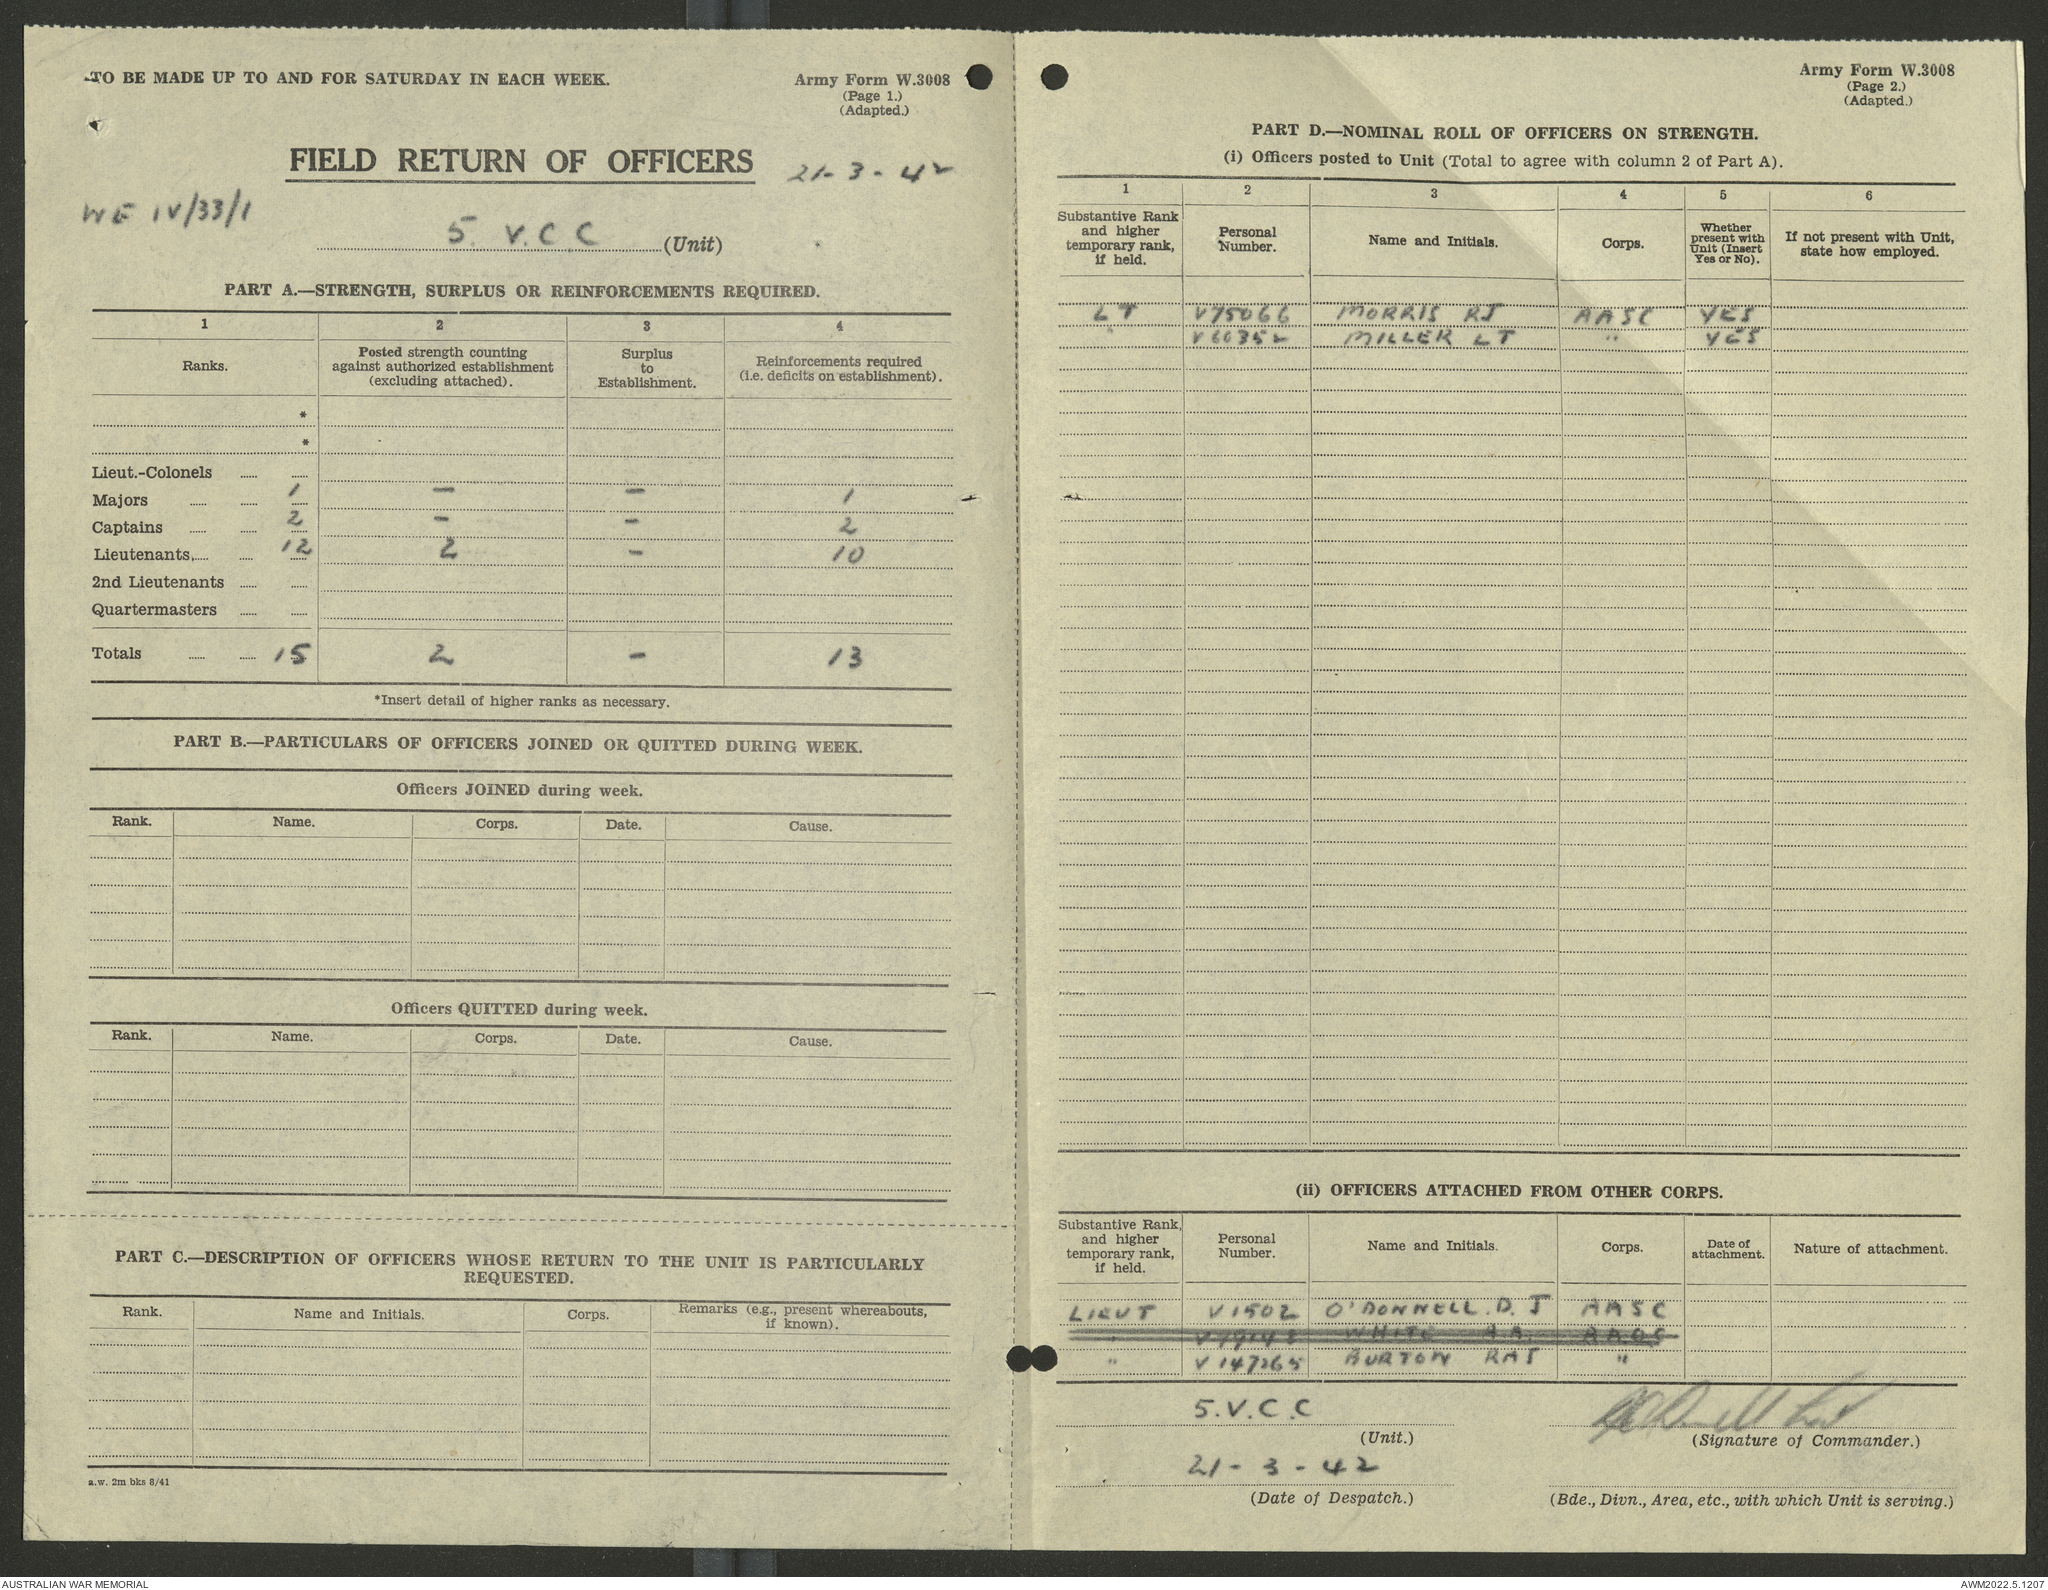 TO BE MADE UP TO AND FOR SATURDAY IN EACH WEEK.
Army Form W.3008
(Page 1.)
(Adapted.)
FIELD RETURN OF OFFICERS 21-3-42
WE IV/33/1
5. V.C.C (Unit)
PART A.—STRENGTH, SURPLUS OR REINFORCEMENTS REQUIRED.
1 2 3 4
Ranks. Posted strength counting against authorized establishment (excluding attached). Surplus to Establishment. Reinforcements required (i.e. deficits on establishment).
*
*
Lieut.-Colonels
Majors 1 — — 1
Captains 2 - - 2
Lieutenants, 12 2 - 10
2nd Lieutenants
Quartermasters
Totals 15 2 - 13
*Insert detail of higher ranks as necessary.
PART B.—PARTICULARS OF OFFICERS JOINED OR QUITTED DURING WEEK.
Officers JOINED during week.
Rank. Name. Corps. Date. Cause.
Officers QUITTED during week.
Rank. Name. Corps. Date. Cause.
PART C.—DESCRIPTION OF OFFICERS WHOSE RETURN TO THE UNIT IS PARTICULARLY
REQUESTED.
Rank. Name and Initials. Corps. Remarks (e.g., present whereabouts, if known).
a.w. 2m bks 8/41
Army Form W.3008
(Page 2.)
(Adapted.)
PART D.—NOMINAL ROLL OF OFFICERS ON STRENGTH.
(i) Officers posted to Unit (Total to agree with column 2 of Part A).
1 2 3 4 5 6
Substantive Rank and higher temporary rank, if held. Personal Number. Name and Initials. Corps. Whether present with Unit (Insert Yes or No). If not present with Unit, state how employed.
LT V75066 MORRIS RJ AASC YES
" V60352 MILLER LT " YES
(ii) OFFICERS ATTACHED FROM OTHER CORPS.
Substantive Rank, and higher temporary rank, if held. Personal Number. Name and Initials. Corps. Date of attachment. Nature of attachment.
LIEUT V1502 O'DONNELL. D. J AASC
" WHITE A.A.
" V147265 BURTON RAS "
5.V.C.C
(Unit.)
(Signature of Commander.)
21-3-42
(Date of Despatch.)
(Bde., Divn., Area, etc., with which Unit is serving.)
AUSTRALIAN WAR MEMORIAL
AWM2022.5.1207